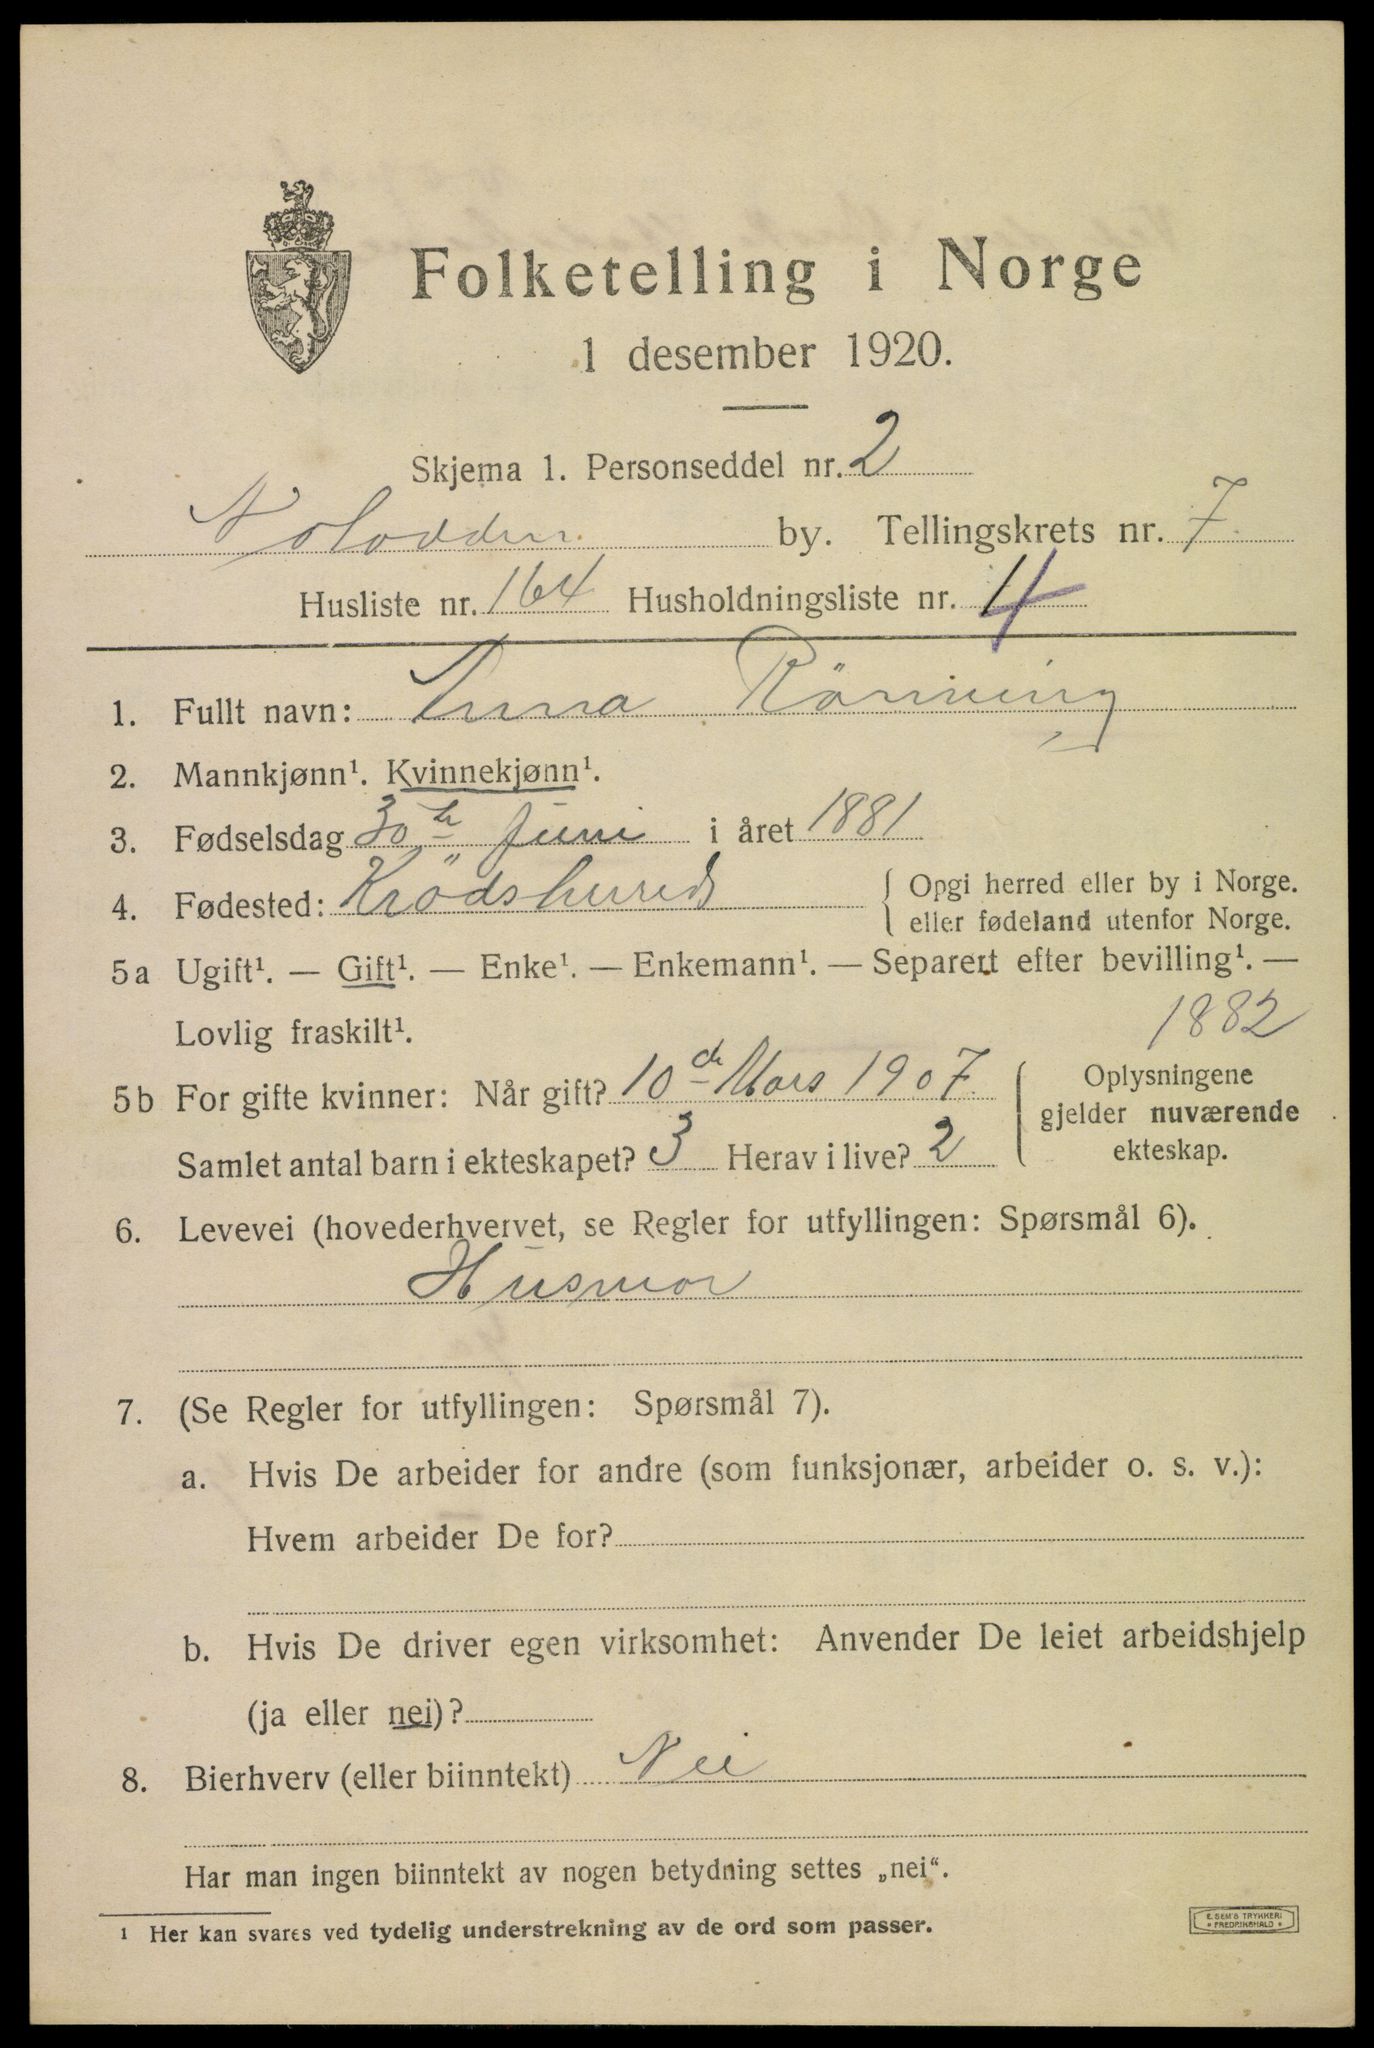 Folketelling i Norge
1 desember 1920.
Skjema 1. Personseddel nr. 2
Notodden by. Tellingskrets nr. 7
Husliste nr. 164 Husholdningsliste nr. 4
1. Fullt navn: Anna Rönning
2. Mannkjønn¹. Kvinnekjønn¹.
3. Fødselsdag 30te Juni i året 1881
4. Fødested: Krödsherred { Opgi herred eller by i Norge.
eller fødeland utenfor Norge.
5a Ugift¹. — Gift¹. — Enke¹. — Enkemann¹. — Separert efter bevilling¹. —
Lovlig fraskilt¹.
1882
5b For gifte kvinner: Når gift? 10de Mars 1907 { Oplysningene
gjelder nuværende
Samlet antal barn i ekteskapet? 3 Herav i live? 2 ekteskap.
6. Levevei (hovederhvervet, se Regler for utfyllingen: Spørsmål 6).
Husmor
7. (Se Regler for utfyllingen: Spørsmål 7).
a. Hvis De arbeider for andre (som funksjonær, arbeider o. s. v.):
Hvem arbeider De for?
b. Hvis De driver egen virksomhet: Anvender De leiet arbeidshjelp
(ja eller nei)?
8. Bierhverv (eller biinntekt) Nei
Har man ingen biinntekt av nogen betydning settes „nei“.
¹ Her kan svares ved tydelig understrekning av de ord som passer.
E. SEM'S TRYKKERI
* FREDRIKSHALD *